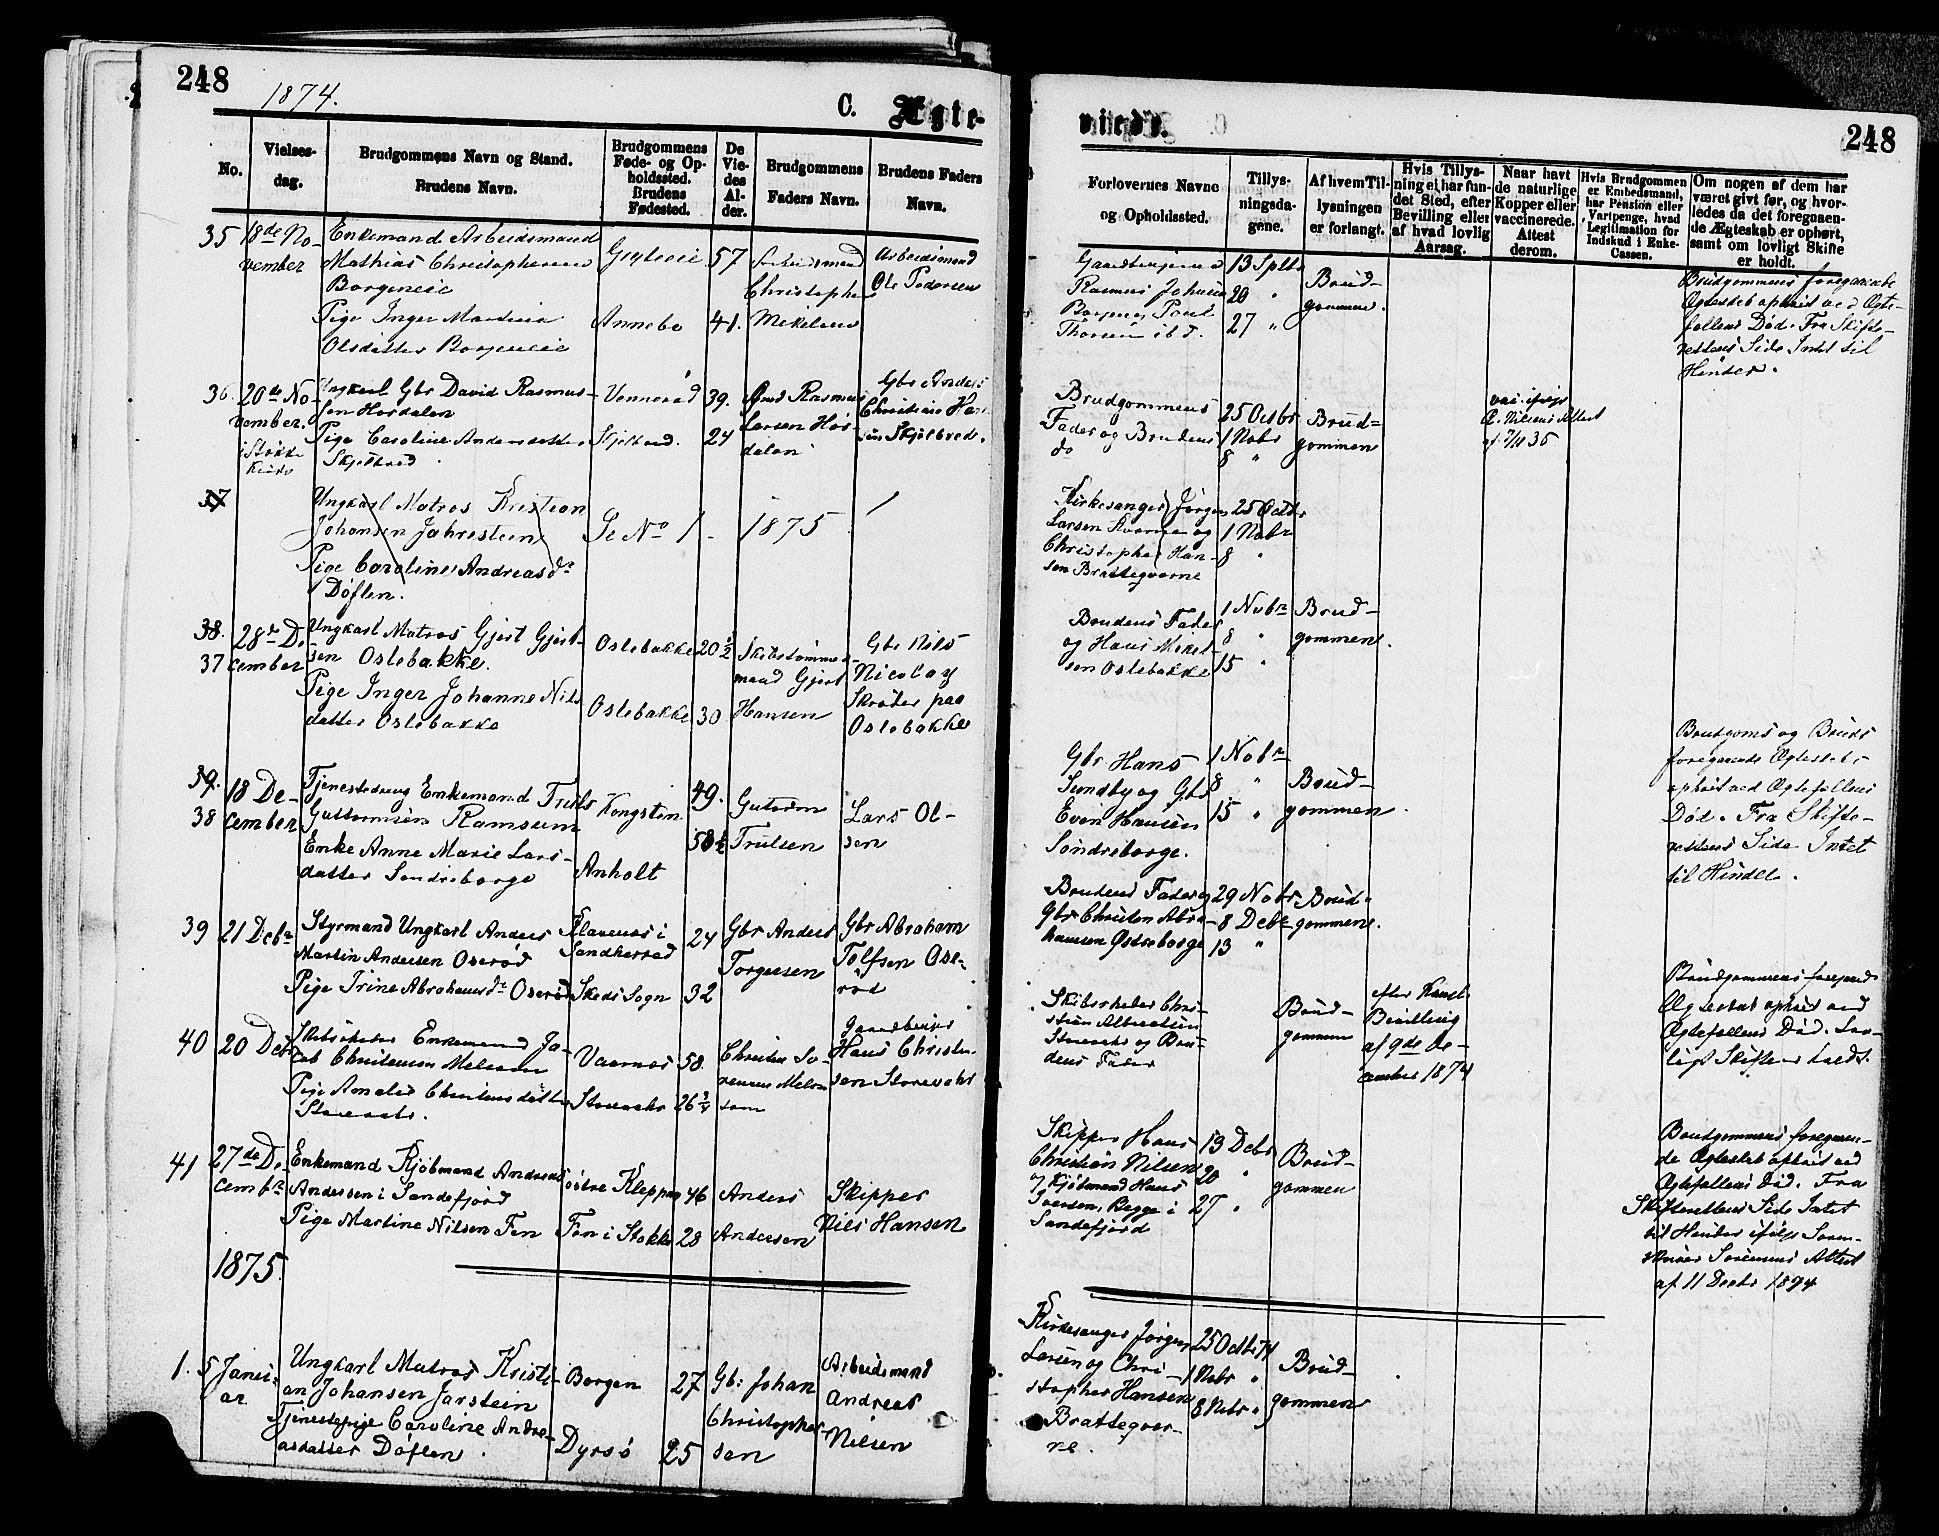 248
1874.
C. Ægte-
No.
Vielses-
dag.
Brudgommens Navn og Stand.
Brudens Navn.
Brudgommens
Føde- og Op-
holdssted.
Brudens
Fødested.
De
Vie-
des
Al-
der.
Brudgommens
Faders Navn.
Brudens Faders
Navn.
35
18de No-
vember
Enkemand Arbeidsmand
Mathias Christophersen
Borgeneie
Pige Inger
Olsdatter Borgeneie
Annebo
57
41.
Arbeidsmand
Christopher
Mikelsen
Arbeidsmand
Ole Pedersen
36.
20de No-
vember.
i Stokke
Kirke
Ungkarl Gbr David Rasmus-
sen Hordalen
Pige Caroline Andersdatter
Skjelbred
Vennerød
Skjelbred.
39.
24
Gbr Rasmus
Larsen Hor-
dalen
Gbr Anders
Christian Han-
sen Skjelbred.
37
Ungkarl Matros Kristian
Johansen Jahrestein
Pige Caroline Andreasdr
Døflen.
Se No 1 - 1875
38.
37
28de De-
cember
Ungkarl Matros Gjert Gjert-
sen Oslebakke.
Pige Inger Johanne Nils
datter Oslebakke
Oslebakke
Oslebakke
20½
30
Skibstømmer-
mand Gjert
Hansen
Gbr Nils
Nicolay
Skrøder paa
Oslebakke
39.
38
18 De-
cember
Tjenestedreng Enkemand Truls
Guttormsen Ramsum
Enke Anne Marie Lars-
datter Søndreborge
Kongsten
Anholt
49.
Gutorm
Trulsen
Lars Ol-
sen
39
21 Debr
Styrmand Ungkarl Anders
Martin Andersen Oserød
Pige Trine Abrahamsdr Oserød
Klavenes i
Sandherred
Skeds Sogn
24
32
Gbr Anders
Torgersen
Gbr Abraham
Tolfsen Ose-
rød
40
20 Debr
Skibsreder Enkemand Ja-
cob Christensen Melsom
Pige Amalie Christensdatter
Storevahr.
Vaarnes
Storevahr
58.
26¾
Christen Sø-
rensen Mels-
som
Gaardbruger
Hans Christen-
sen Storevahr
41
27de De-
cembr
Enkemand Kjøbmand Andreas
Andersen i Sandefjord
Pige Martine Nilsen Fen
østre Kleppan
Fen i Stokke
46
28
Anders
Andersen
Skipper
Nils Hansen
1875.
1.
5 Janu-
ar
Ungkarl Matros Kristi-
an Johansen Jarstein
Tjenestepige Caroline Andre-
asdatter Døflen.
Borgen
Dyrsø
27
25
Gb: Johan
Christopher-
sen
Arbeidsmand
Andreas
Nilsen
viede.
248
Forlovernes Navne
og Opholdssted.
Tillys-
ningsda-
gene.
Af hvem Til-
lysningen
er forlangt.
Hvis Tillys-
ning ei har fun-
det Sted, efter
Bevilling eller
af hvad lovlig
Aarsag.
Naar havt
de naturlige
Kopper eller
vaccinerede.
Attest
derom.
Hvis Brudgommen
er Embedsmand,
har Pension eller
Vartpenge, hvad
Legitimation for
Indskud i Enke-
Cassen.
Om nogen af dem har
været givt før, og hvor-
ledes da det foregaaen-
de Ægteskab er ophørt,
samt om lovligt Skifte
er holdt.
Gaardbrugerne
Rasmus Johnsen
Borgen og Poul
Thorsen ibd.
13 Sptbr
20 "
27 "
Brud-
gommen.
Brudgommens foregaaende
Ægteskab ophævet ved Ægte-
fællens Død. Fra Skifte-
rettens Side Intet til
Hinder.
Brudgommens
Fader og Brudens
do
25 Octbr
1 Nobr
8 "
Brud-
gommen
Kirkesanger Jørgen
Larsen Kverne og
Christopher Han-
sen Brattegverne
25 Octbr
1 Nobr
8 "
Brudens Fader
og Hans Mikel-
sen Oslebakke
1 Nobr
8 "
15 "
Brud-
gommen.
Gbr Hans
Sundby og Gbr
Even Hansen
Søndreborge.
1 Nobr
8 "
15 "
Brud-
gommen.
Brudgoms og Bruds
foregaaende Ægteskab
ophævet ved Ægtefællens
Død. Fra Skifte-
rettens Side Intet
til Hinder.
Brudens Fader og
Gbr Christen Abra-
hamsen Østreborge
29 Nobr
8 Debr
13 "
Brud-
gommen.
Skibsreder Chri-
stian Albretsen
Storevahr og Bru-
dens Fader
Brud-
gommen
efter Kongl.
Bevilling
af 9de De-
cember 1874
Brudgommens foregaaende
Ægteskab ophævet ved
Ægtefællens Død. Lov-
ligt Skifte er holdt.
Skipper Hans
Christian Nilsen
og Kjøbmand Hans
Iversen, Bugge i
Sandefjord
13 Debr
20 "
27 "
Brud-
gommen
Brudgommens foregaaen-
de Ægteskab ophævet ved
Ægtefællens Død. Fra
Skifterettens Side Intet
til Hinder ifølge Soren-
skriver Sørensens Attest
af 11 Decbr 1874
Kirkesanger Jørgen
Larsen og Chri-
stopher Hansen
Brattegver-
ne.
25 Octbr 74
1 Nobr "
8 Nobr "
Brud-
gommen